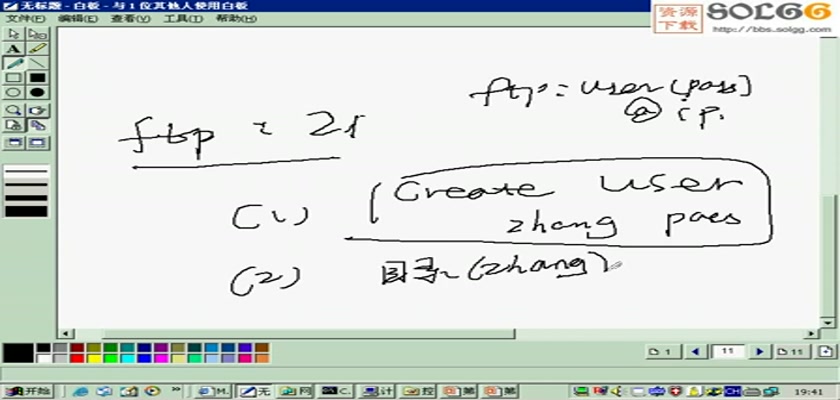 无标题 - 白板 - 与 1 位其他人使用白板
文件(F) 编辑(E) 查看(V) 工具(T) 帮助(H)
资源下载 SOLGG
http://bbs.solgg.com
A
ftp: user [pass]
@ ip.
ftp : 21
(1) Create user
zhang pass
(2) 目录(zhang)
1 11 11
开始 M. 无 网 C. 计 控 第 第 CH 19:41